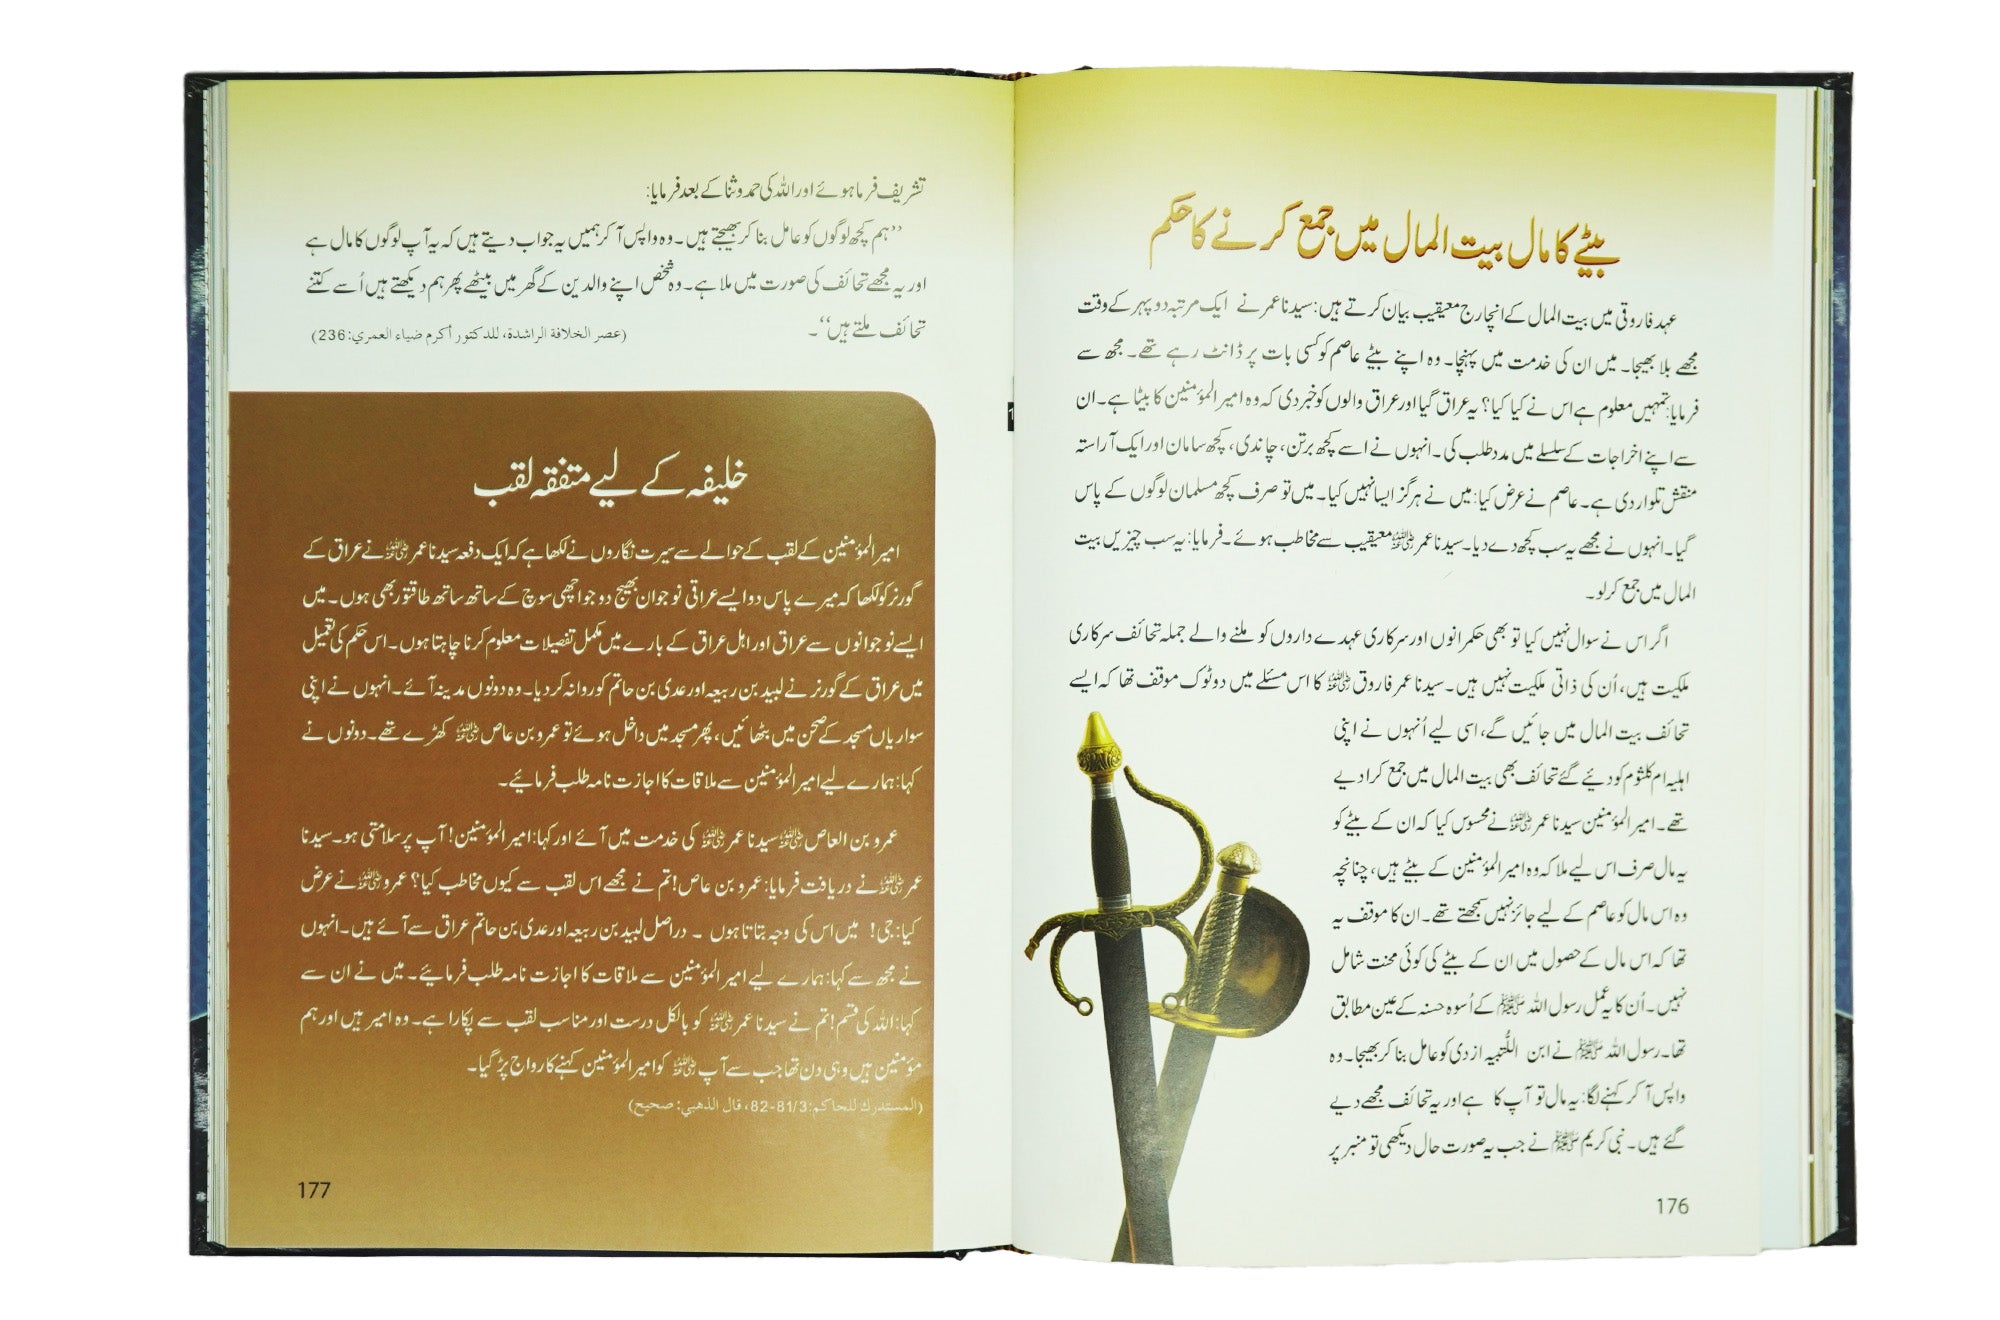 بیٹے کا مال بیت المال میں جمع کرنے کا حکم
عہد فاروقی میں بیت المال کے انچارج معیقیب بیان کرتے ہیں: سیدنا عمر نے ایک مرتبہ دوپہر کے وقت
مجھے بلا بھیجا۔ میں ان کی خدمت میں پہنچا۔ وہ اپنے بیٹے عاصم کو کسی بات پر ڈانٹ رہے تھے۔ مجھ سے
فرمایا: تمہیں معلوم ہے اس نے کیا کیا؟ یہ عراق گیا اور عراق والوں کو خبر دی کہ وہ امیر المؤمنین کا بیٹا ہے۔ ان
سے اپنے اخراجات کے سلسلے میں مدد طلب کی۔ انہوں نے اسے کچھ برتن، چاندی، کچھ سامان اور ایک آراستہ
منقش تلوار دی ہے۔ عاصم نے عرض کیا: میں نے ہرگز ایسا نہیں کیا۔ میں تو صرف کچھ مسلمان لوگوں کے پاس
گیا۔ انہوں نے مجھے یہ سب کچھ دے دیا۔ سیدنا عمر رضی اللہ عنہ معیقیب سے مخاطب ہوئے۔ فرمایا: یہ سب چیزیں بیت
المال میں جمع کر لو۔
اگر اس نے سوال نہیں کیا تو بھی حکمرانوں اور سرکاری عہدے داروں کو ملنے والے جملہ تحائف سرکاری
ملکیت ہیں، اُن کی ذاتی ملکیت نہیں ہیں۔ سیدنا عمر فاروق رضی اللہ عنہ کا اس مسئلے میں دوٹوک موقف تھا کہ ایسے
تحائف بیت المال میں جائیں گے، اسی لیے اُنہوں نے اپنی
اہلیہ ام کلثوم کو دیئے گئے تحائف بھی بیت المال میں جمع کرا دیے
تھے۔ امیر المؤمنین سیدنا عمر رضی اللہ عنہ نے محسوس کیا کہ ان کے بیٹے کو
یہ مال صرف اس لیے ملا کہ وہ امیر المؤمنین کے بیٹے ہیں، چنانچہ
وہ اس مال کو عاصم کے لیے جائز نہیں سمجھتے تھے۔ ان کا موقف یہ
تھا کہ اس مال کے حصول میں ان کے بیٹے کی کوئی محنت شامل
نہیں۔ اُن کا یہ عمل رسول اللہ ﷺ کے اُسوہ حسنہ کے عین مطابق
تھا۔ رسول اللہ ﷺ نے ابن اللُّتبیہ ازدی کو عامل بنا کر بھیجا۔ وہ
واپس آ کر کہنے لگا: یہ مال تو آپ کا ہے اور یہ تحائف مجھے دیے
گئے ہیں۔ نبی کریم ﷺ نے جب یہ صورت حال دیکھی تو منبر پر
176
تشریف فرما ہوئے اور اللہ کی حمد و ثنا کے بعد فرمایا:
”ہم کچھ لوگوں کو عامل بنا کر بھیجتے ہیں۔ وہ واپس آ کر ہمیں یہ جواب دیتے ہیں کہ یہ آپ لوگوں کا مال ہے
اور یہ مجھے تحائف کی صورت میں ملا ہے۔ وہ شخص اپنے والدین کے گھر میں بیٹھے پھر ہم دیکھتے ہیں اُسے کتنے
تحائف ملتے ہیں“۔ (عصر الخلافة الراشدة، للدكتور أكرم ضياء العمري: 236)
خلیفہ کے لیے متفقہ لقب
امیر المؤمنین کے لقب کے حوالے سے سیرت نگاروں نے لکھا ہے کہ ایک دفعہ سیدنا عمر رضی اللہ عنہ نے عراق کے
گورنر کو لکھا کہ میرے پاس دو ایسے عراقی نوجوان بھیج دو جو اچھی سوچ کے ساتھ ساتھ طاقتور بھی ہوں۔ میں
ایسے نوجوانوں سے عراق اور اہل عراق کے بارے میں مکمل تفصیلات معلوم کرنا چاہتا ہوں۔ اس حکم کی تعمیل
میں عراق کے گورنر نے لبید بن ربیعہ اور عدی بن حاتم کو روانہ کر دیا۔ وہ دونوں مدینہ آئے۔ انہوں نے اپنی
سواریاں مسجد کے صحن میں بٹھائیں، پھر مسجد میں داخل ہوئے تو عمرو بن عاص رضی اللہ عنہ کھڑے تھے۔ دونوں نے
کہا: ہمارے لیے امیر المؤمنین سے ملاقات کا اجازت نامہ طلب فرمائیے۔
عمرو بن العاص رضی اللہ عنہ سیدنا عمر رضی اللہ عنہ کی خدمت میں آئے اور کہا: امیر المؤمنین! آپ پر سلامتی ہو۔ سیدنا
عمر رضی اللہ عنہ نے دریافت فرمایا: عمرو بن عاص! تم نے مجھے اس لقب سے کیوں مخاطب کیا؟ عمرو رضی اللہ عنہ نے عرض
کیا: جی! میں اس کی وجہ بتاتا ہوں ۔ دراصل لبید بن ربیعہ اور عدی بن حاتم عراق سے آئے ہیں۔ انہوں
نے مجھ سے کہا: ہمارے لیے امیر المؤمنین سے ملاقات کا اجازت نامہ طلب فرمائیے۔ میں نے ان سے
کہا: اللہ کی قسم! تم نے سیدنا عمر رضی اللہ عنہ کو بالکل درست اور مناسب لقب سے پکارا ہے۔ وہ امیر ہیں اور ہم
مؤمنین ہیں وہی دن تھا جب سے آپ رضی اللہ عنہ کو امیر المؤمنین کہنے کا رواج پڑ گیا۔
(المستدرك للحاكم: 81/3-82، قال الذهبي: صحيح)
177